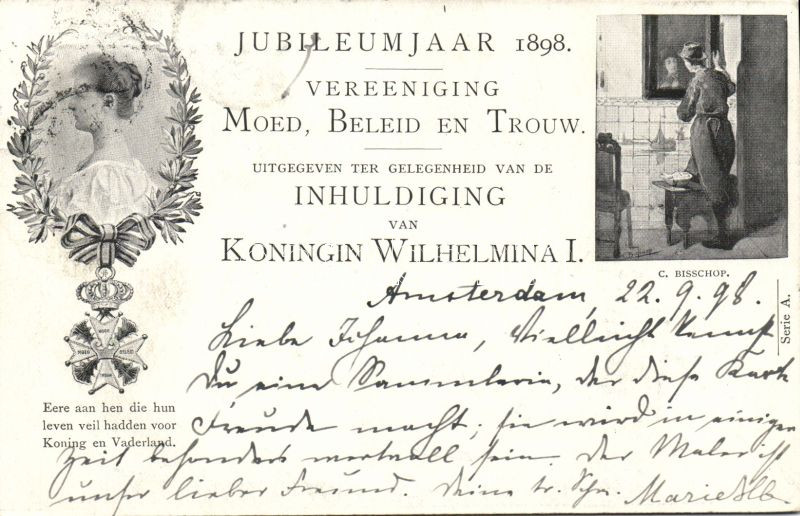 JUBILEUMJAAR 1898.
VEREENIGING
MOED, BELEID EN TROUW.
UITGEGEVEN TER GELEGENHEID VAN DE
INHULDIGING
VAN
KONINGIN WILHELMINA I.
C. BISSCHOP.
Serie A.
MOED
BELEID
TROUW
Eere aan hen die hun
leven veil hadden voor
Koning en Vaderland.
Amsterdam, 22.9.98.
Liebe Johanna, Vielleicht kennst
Du eine Sammlerin, der diese Karte
Freude macht; sie wird in einigen
Zeit besonders wertvoll sein. Der Maler ist
unser lieber Freund. Deine tr. Schw. Marie